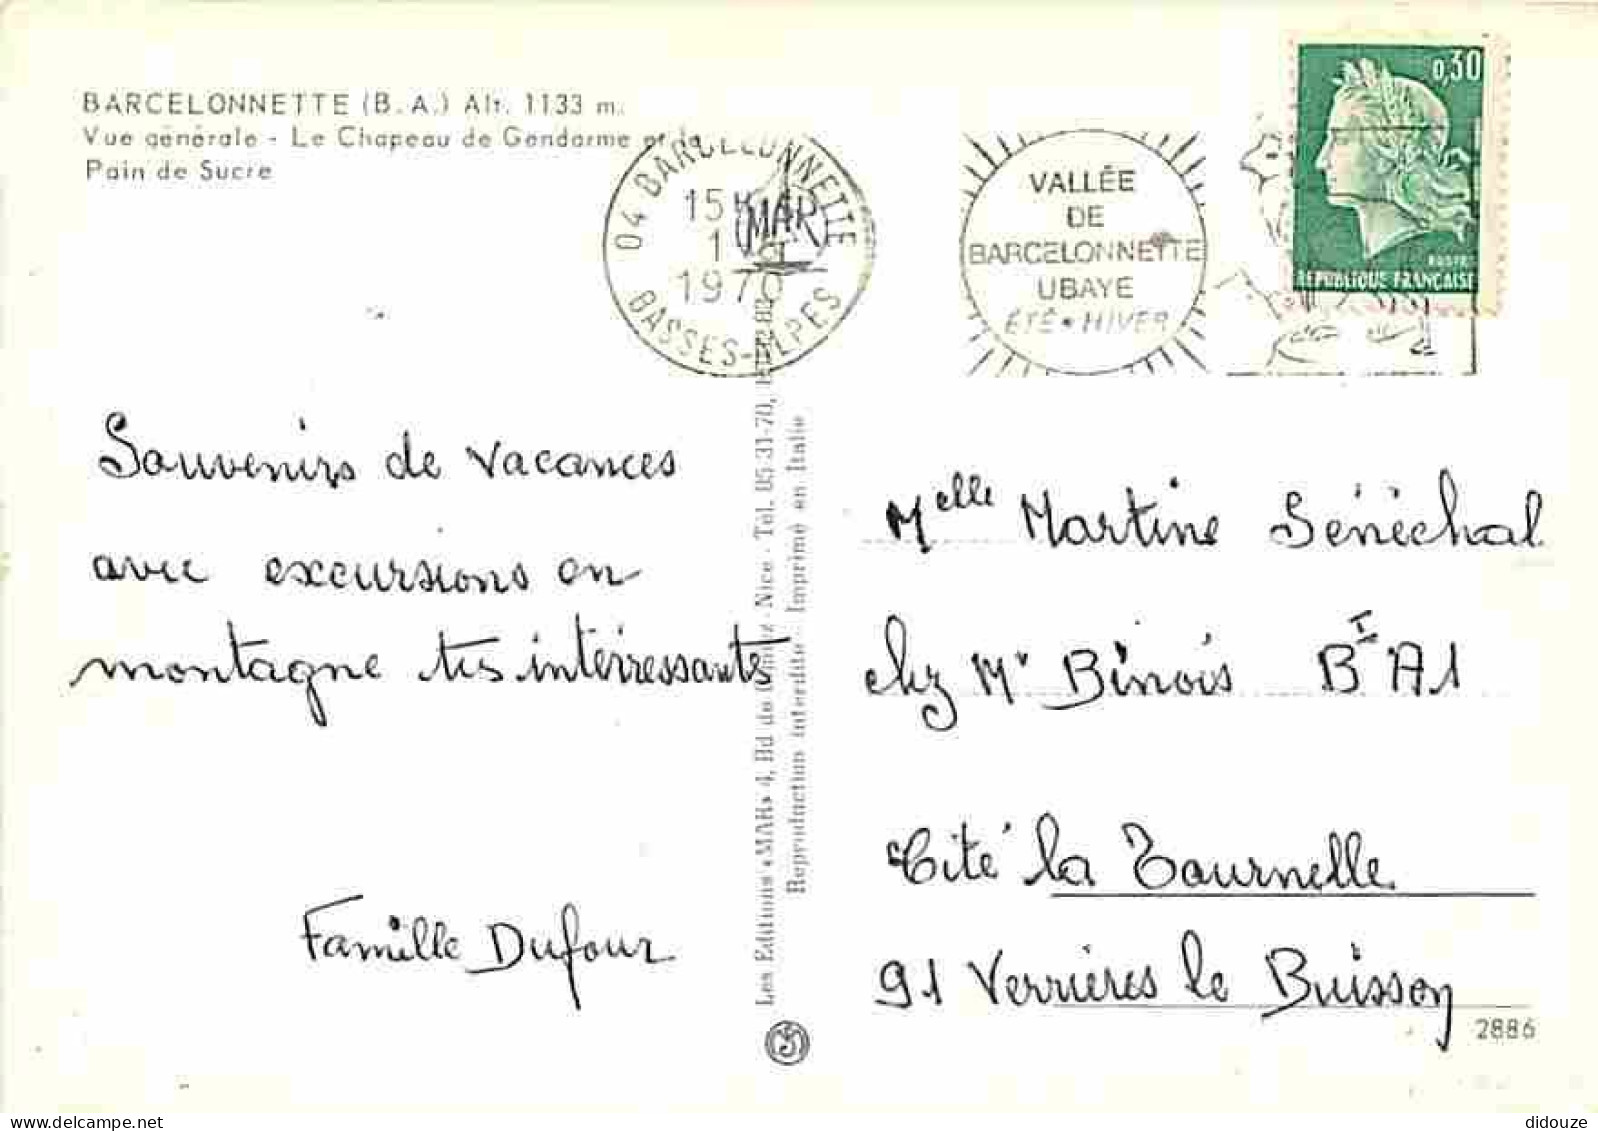 BARCELONNETTE (B.A.) Alt. 1133 m.
Vue générale - Le Chapeau de Gendarme et le
Pain de Sucre
04 BARCELONNETTE
15H
1
1970
BASSES-ALPES
MAR
VALLÉE
DE
BARCELONNETTE
UBAYE
ÉTÉ • HIVER
0,30
POSTES
REPUBLIQUE FRANÇAISE
Souvenirs de vacances
avec excursions en
montagne très intérressantes
Famille Dufour
Les Editions «MAR» 4, Bd de - Nice - Tél. 85-31-70,
Reproduction interdite - Imprimé en Italie
Melle Martine Sénéchal
chez Mr Binois Bt A1
Cité la Tournelle
91 Verrières le Buisson
2886
didouze | delcampe.net